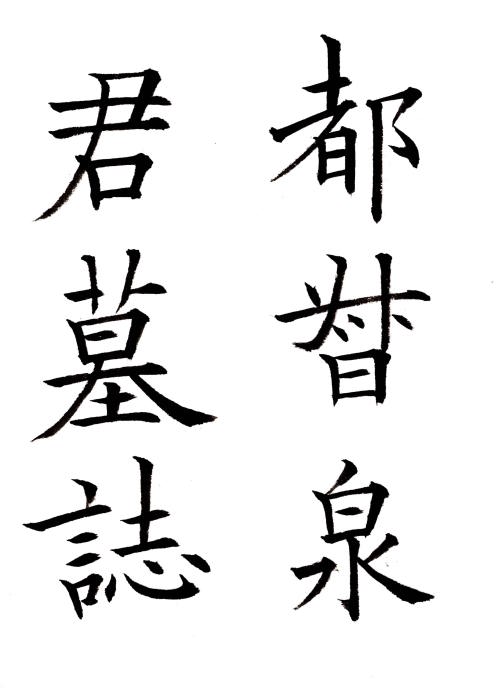 都督泉
君墓誌